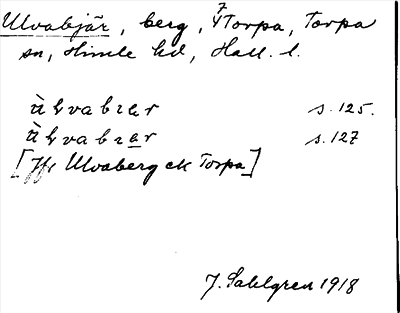 Ulvabjär, berg, 7/4 Torpa, Torpa
sn, Himle hd, Hall. l.
ùlvabɛar s. 125.
ùlvabɛar s. 127
[Jfr Ulvaberg ek Torpa]
J. Sahlgren 1918